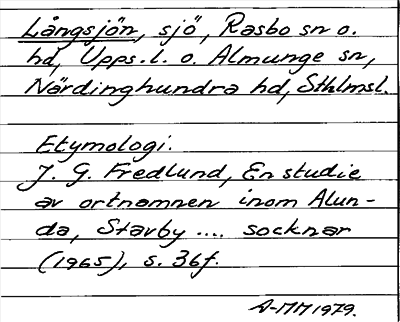 Långsjön, sjö, Rasbo sn o.
hd, Upps. l. o. Almunge sn,
Närdinghundra hd, Sthlmsl.
Etymologi.
J. G. Fredlund, En studie
av ortnamnen inom Alun-
da, Stavby .... socknar
(1965), s. 36f.
A-MM 1979.